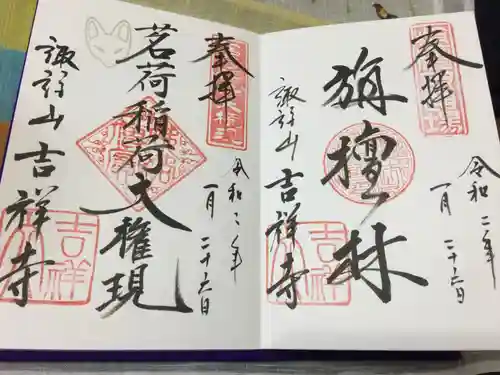 奉拝
旃檀林
令和二年
一月二十六日
諏訪山吉祥寺
吉祥
奉拝
茗荷稲荷大権現
令和二年
一月二十六日
諏訪山吉祥寺
吉祥